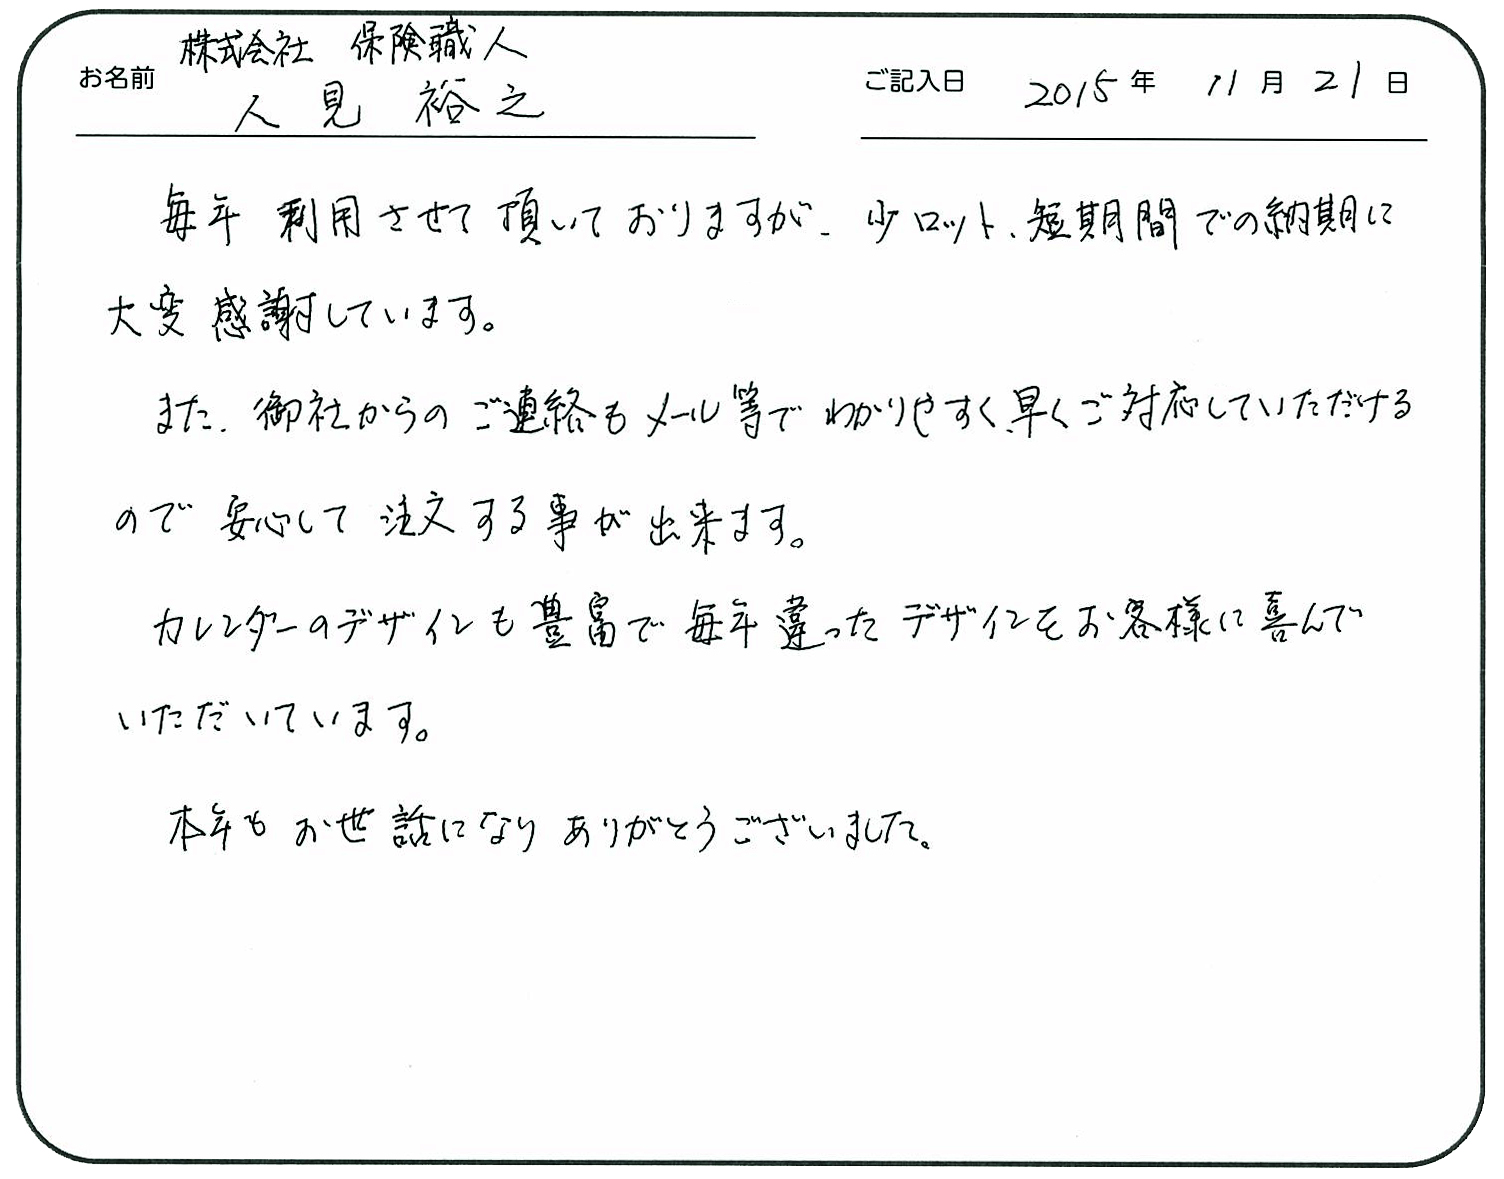 株式会社 保険職人
お名前 人見 裕之
ご記入日 2015年 11月 21日
毎年 利用させて頂いておりますが、少ロット、短期間での納期に
大変感謝しています。
また、御社からのご連絡もメール等でわかりやすく、早くご対応していただける
ので 安心して 注文する事が出来ます。
カレンダーのデザインも豊富で毎年違ったデザインをお客様に喜んで
いただいています。
本年もお世話になりありがとうございました。